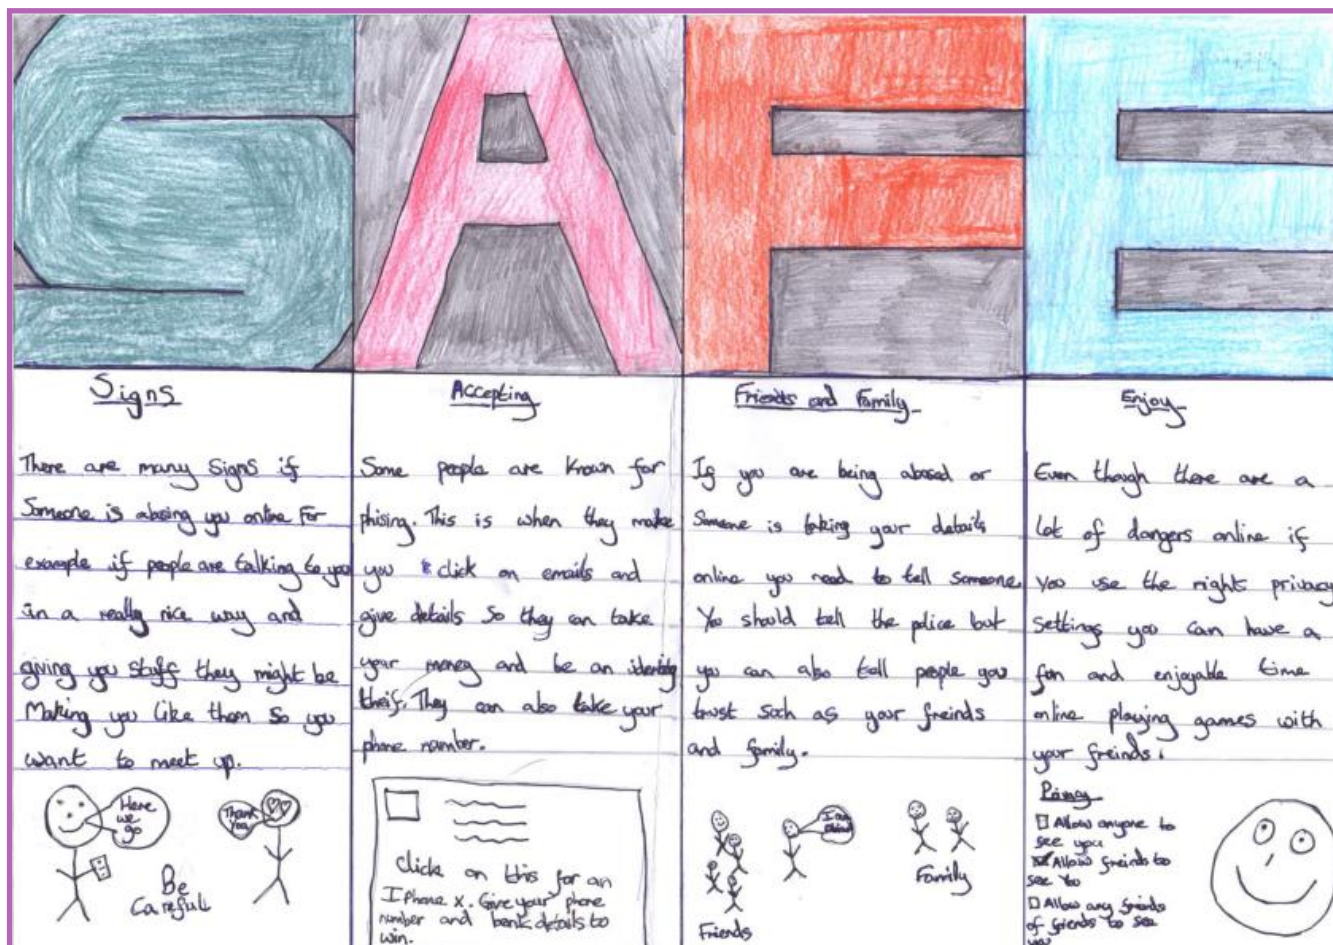 SAFE
Signs
There are many signs if
Someone is abusing you online For
example if people are talking to you
in a really nice way and
giving you stuff they might be
Making you like them so you
want to meet up.
Here
we
go
Thank
You
Be
Careful
Accepting
Some people are known for
phising. This is when they make
you click on emails and
give details so they can take
your money and be an identity
theif. They can also take your
phone number.
Click on this for an
I phone x. Give your phone
number and bank details to
win.
Friends and Family
If you are being abused or
Someone is taking your details
online you need to tell someone.
You should tell the police but
you can also tell people you
trust such as your freinds
and family.
I am
Friends
Family
Enjoy
Even though there are a
lot of dangers online if
you use the right privacy
settings you can have a
fun and enjoyable time
online playing games with
your freinds.
Privacy
Allow anyone to
see you
Allow freinds to
see You
Allow any friends
of friends to see
you